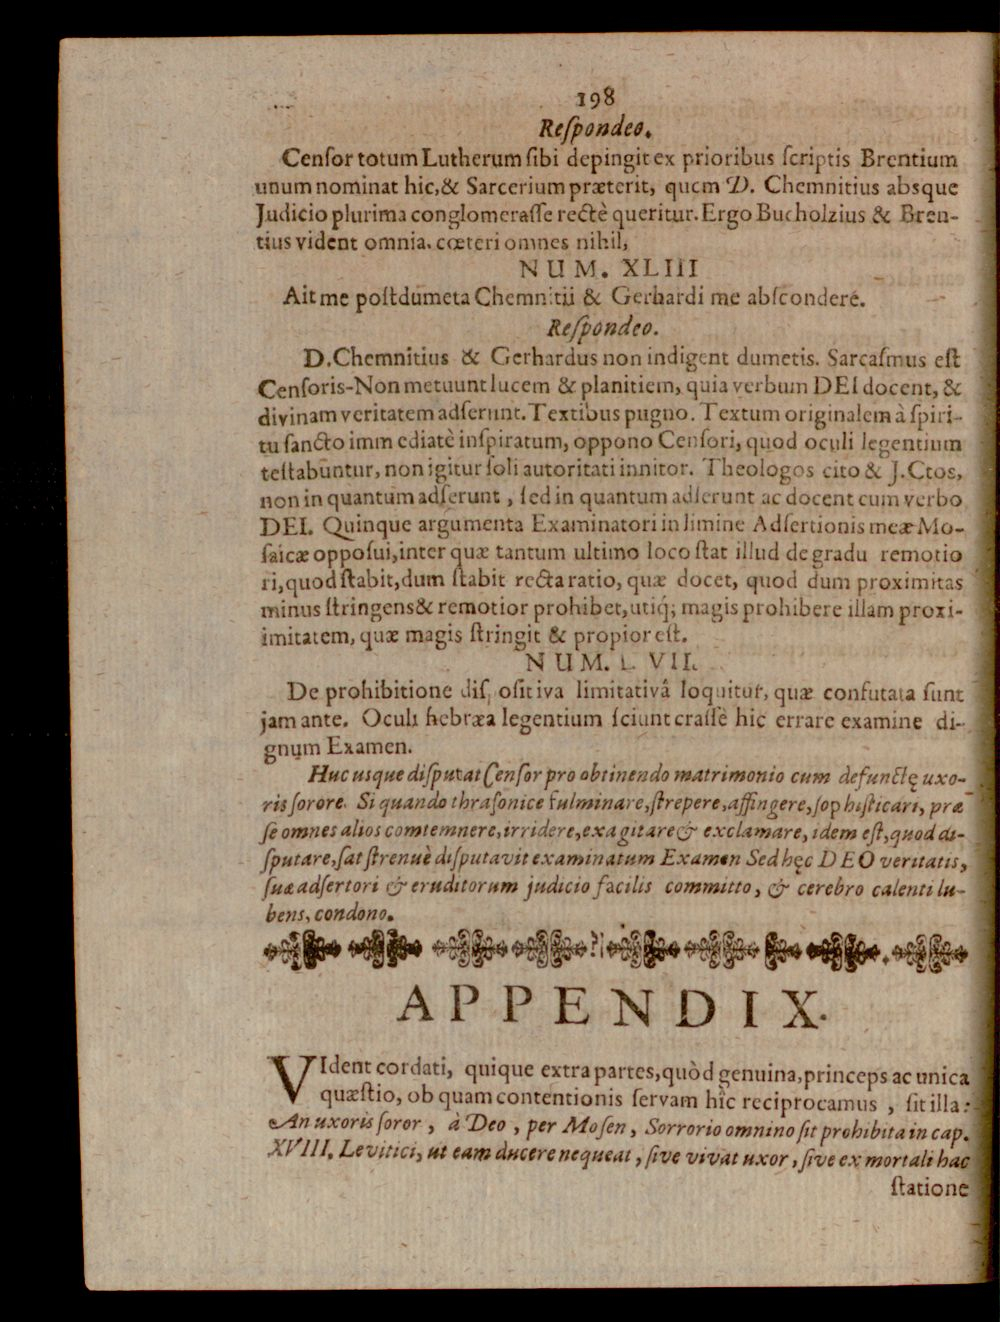 198
Reſpondeo.
Cenſor totum Lutherum ſibi depingit ex prioribus ſcriptis Brentium
unum nominat hic, & Sarcerium præterit, quem D. Chemnitius absque
Judicio plurima conglomeraſſe rectè queritur. Ergo Bucholzius & Bren-
tius vident omnia. cœteri omnes nihil,
NUM. XLIII
Ait me poſt dumeta Chemnitii & Gerhardi me abſcondere.
Reſpondeo.
D. Chemnitius & Gerhardus non indigent dumetis. Sarcaſmus eſt
Cenſoris-Non metuunt lucem & planitiem, quia verbum DEI docent, &
divinam veritatem adſerunt. Textibus pugno. Textum originalem à ſpiri-
tu ſancto imm ediatè inſpiratum, oppono Cenſori, quod oculi legentium
teſtabuntur, non igitur ſoli autoritati innitor. Theologos cito & J. Ctos,
non in quantum adſerunt, ſed in quantum adſerunt ac docent cum verbo
DEI. Quinque argumenta Examinatori in limine Adſertionis meæ Mo-
ſaicæ oppoſui, inter quæ tantum ultimo loco ſtat illud de gradu remotio
ri, quod ſtabit, dum ſtabit recta ratio, quæ docet, quod dum proximitas
minus ſtringens & remotior prohibet, utiq́; magis prohibere illam proxi-
imitatem, quæ magis ſtringit & propior eſt.
NUM. L VII.
De prohibitione diſpoſitiva limitativâ loquitur, quæ confutata ſunt
jam ante. Oculi hebræa legentium ſciunt craſſè hic errare examine di-
gnum Examen.
Huc usque diſputat Cenſor pro obtinendo matrimonio cum defunctę uxo-
ris ſorore. Si quando thraſonice fulminare, ſtrepere, affingere, ſophiſticari, præ
ſe omnes alios comtemnere, irridere, exagitare & exclamare, idem eſt, quod di-
ſputare, ſat ſtrenuè diſputavit examinatum Examen Sed hęc DEO veritatis,
ſuæ adſertori & eruditorum judicio facilis committo, & cerebro calenti lu-
bens, condono.
APPENDIX.
VIdent cordati, quique extra partes, quòd genuina, princeps ac unica
quæſtio, ob quam contentionis ſervam hîc reciprocamus, ſit illa:
An uxoris ſoror, à Deo, per Moſen, Sorrorio omnino ſit prohibita in cap.
XVIII. Levitici, ut eam ducere nequeat, ſive vivat uxor, ſive ex mortali hac
ſtatione